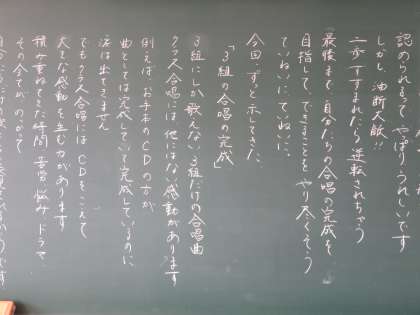 認められるって やっぱり うれしいです
しかし、油断大敵!!
一歩すすまれたら 逆転されちゃう
最後まで、自分たちの合唱の完成を
目指して、できることを やり尽くそう
ていねいに、ていねいに。
今回、ずっと 示してきた、
「3組の合唱の完成」
3組にしか歌えない 3組だけの合唱曲
クラス合唱には 他にはない 感動があります
例えば、お手本のCDの方が、
曲としては 完成していて 完成しているのに
涙は出てきません
でも クラス合唱には CDをこえて
大きな感動を 生む力があります
積み重ねてきた時間 苦労 悩み ドラマ
その全てが のっかって